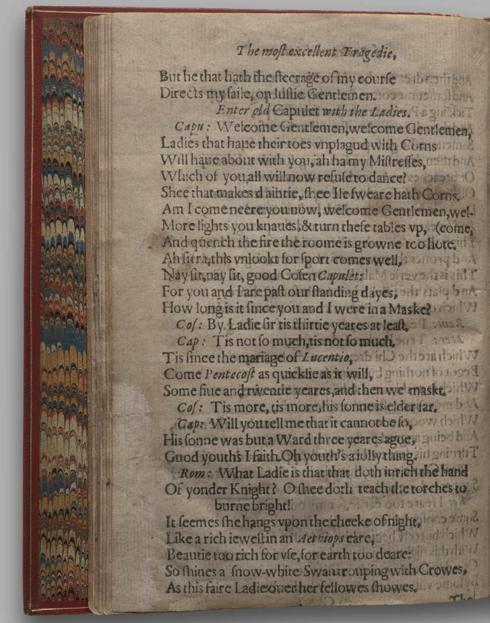 The most excellent Tragedie,
But he that hath the steerage of my course
Directs my saile, on lustie Gentlemen.
Enter old Capulet with the Ladies.
Capu: Welcome Gentlemen, welcome Gentlemen,
Ladies that haue their toes vnplagud with Corns
Will haue about with you, ah ha my Mistresses,
Which of you all will now refuse to dance?
Shee that makes daintie, shee Ile sweare hath Corns.
Am I come neere you now, welcome Gentlemen, wel-
More lights you knaues, & turn these tables vp, (come,
And quench the fire the roome is growne too hote.
Ah sirra, this vnlookt for sport comes well,
Nay sit, nay sit, good Cosen Capulet:
For you and I are past our standing dayes,
How long is it since you and I were in a Maske?
Cos: By Ladie sir tis thirtie yeares at least,
Cap: Tis not so much, tis not so much,
Tis since the mariage of Lucentio,
Come Pentecost as quicklie as it will,
Some fiue and twentie yeares, and then we maskt.
Cos: Tis more, tis more, his sonne is elder far.
Cap: Will you tell me that it cannot be so,
His sonne was but a Ward three yeares agoe,
Good youths I faith. Oh youth's a iolly thing.
Rom: What Ladie is that that doth inrich the hand
Of yonder Knight? O shee doth teach the torches to
burne bright!
It seemes she hangs vpon the cheeke of night,
Like a rich iewell in an Aethiops eare,
Beautie too rich for vse, for earth too deare:
So shines a snow-white Swan trouping with Crowes,
As this faire Ladie ouer her fellowes showes.